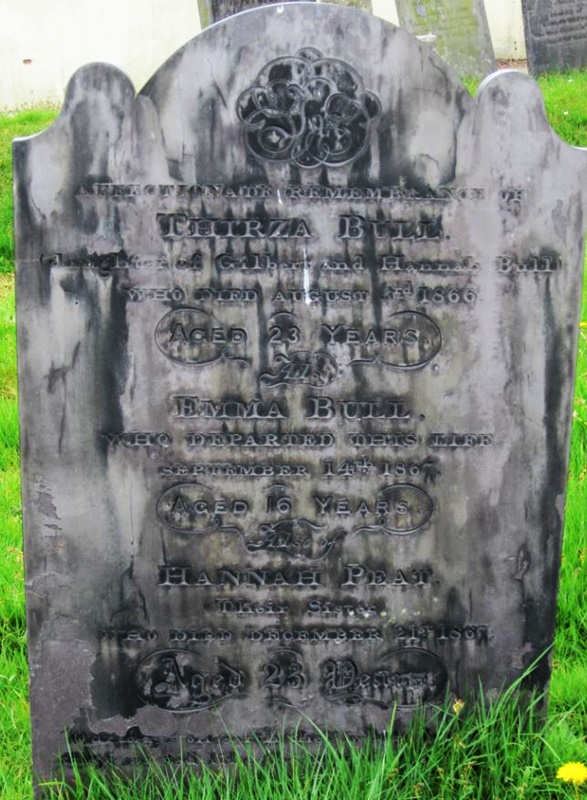 AFFECTIONATE REMEMBRANCE OF
THIRZA BULL.
(daughter of Gilbert and Hannah Bull)
WHO DIED AUGUST 3rd 1866.
AGED 23 YEARS.
Also
EMMA BULL.
WHO DEPARTED THIS LIFE
SEPTEMBER 14th 1867.
AGED 16 YEARS.
Also of
HANNAH PEAT.
Their Sister
WHO DIED DECEMBER 21st 1867.
Aged 23 Years.